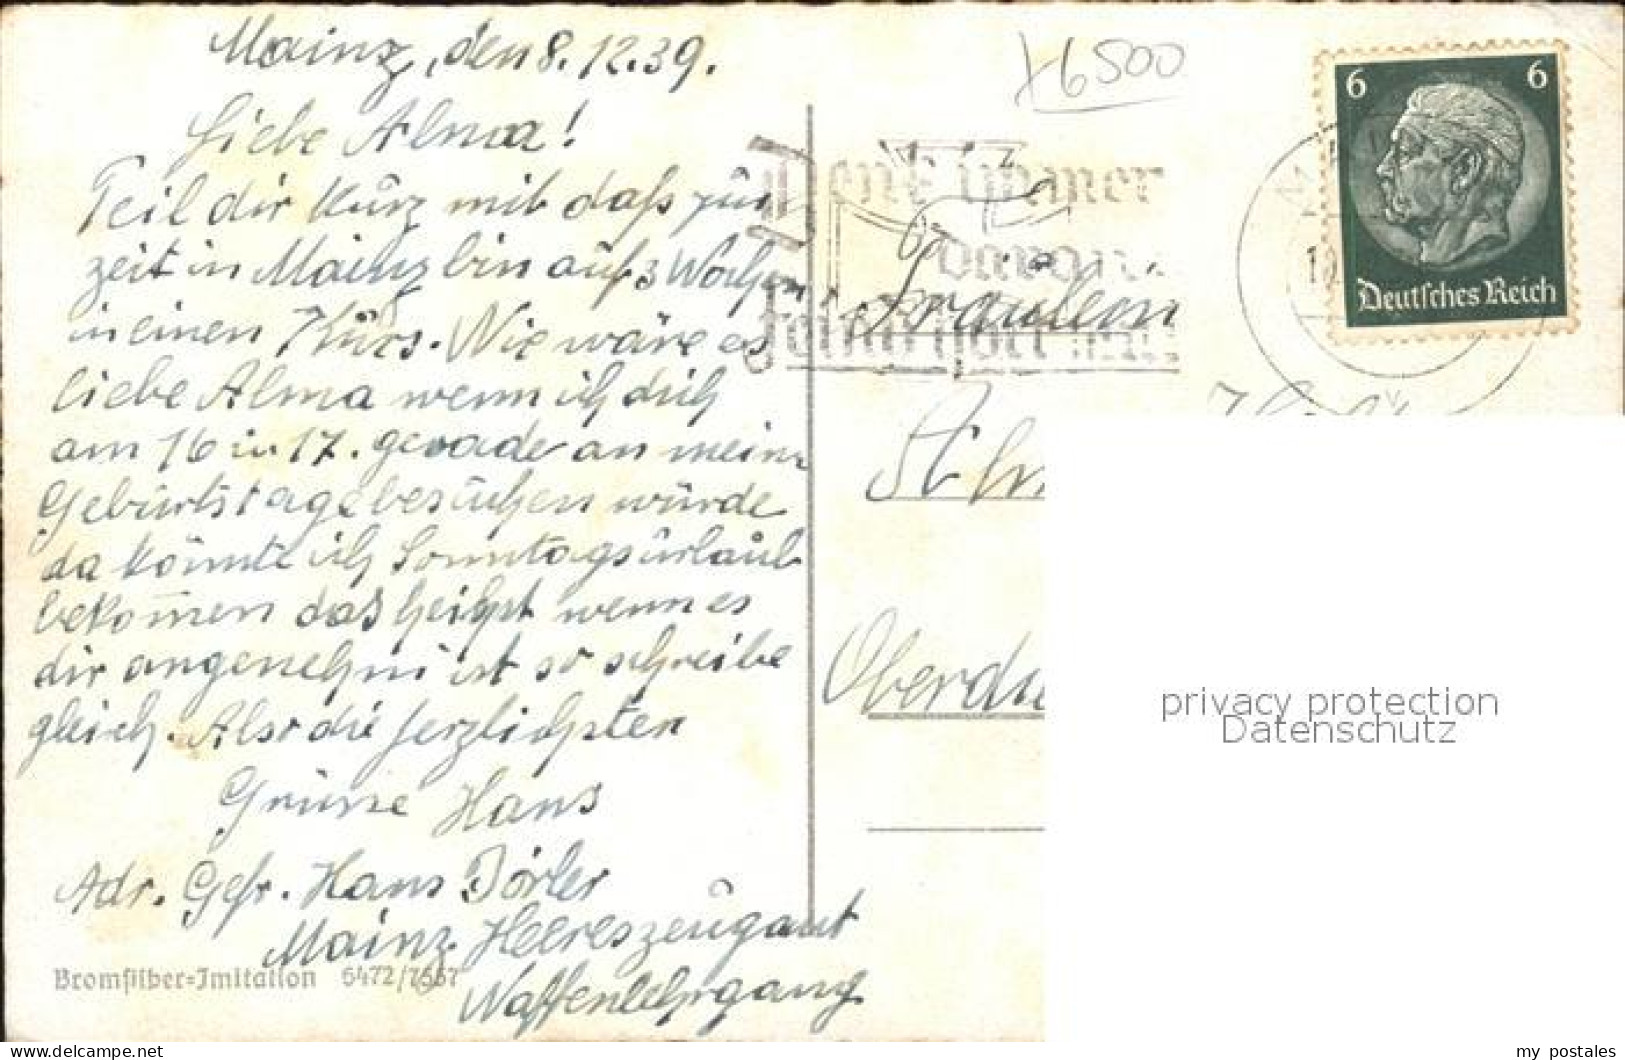 Mainz, den 8.12.39.
Liebe Alma!
Teil dir kurz mit daß zur
zeit in Mainz bin auf 3 Wochen
in einen Kurs. Wie wäre es
liebe Alma wenn ich dich
am 16 u 17. gerade an mein
Geburtstage besuchen würde
da könnte ich Sonntagsurlaub
bekommen das heißst wenn es
dir angenehm ist so schreibe
gleich. Also die herzlichsten
Grüsse Hans
Adr. Gefr. Hans Dörler
Mainz Heereszeugamt
Waffenlehrgang
Bromsilber-Imitation
6500
Denk immer
daran
Fräulein
Oberdu
6 6
Deutsches Reich
privacy protection
Datenschutz
my postales